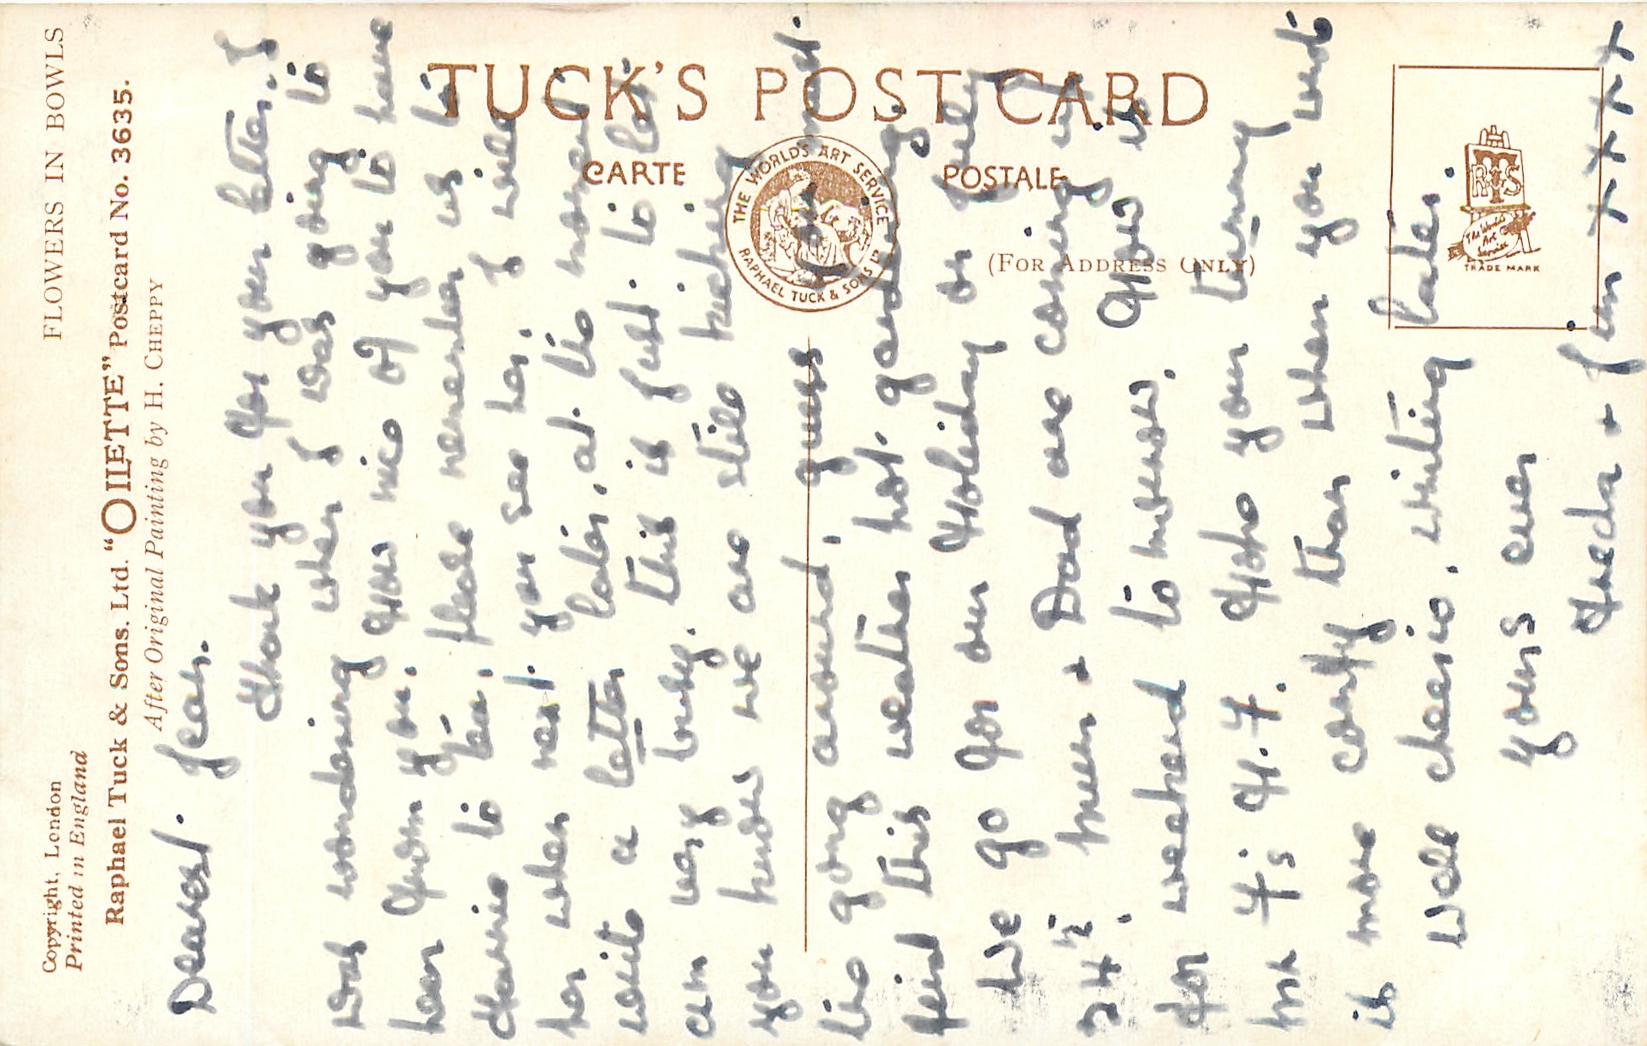 FLOWERS IN BOWLS
Copyright, London
Printed in England
Raphael Tuck & Sons. Ltd. "OILETTE" Postcard No. 3635.
After Original Painting by H. CHEPPY
TUCK'S POST CARD
CARTE POSTALE
(FOR ADDRESS ONLY)
THE WORLD'S ART SERVICE
RAPHAEL TUCK & SONS LTD
RTS
The World's
Art
Service
TRADE MARK
Dearest. Jean.
Thank you for your letter. I
was wondering when I was going to
hear from you. How nice of you to have
to tea, please remember us to
her when next you see her, I will
write a letter later, at the moment
am very busy. this is just to let
you know we are still kicking
going around, guess your
this weather hot. gardening
We go for our Holiday on July
24th. Mum & Dad are coming up
for weekend to morrow. How is
the 4.7. Hope your
it more comfy than when you
well cheerio. writing later.
yours ever
Freda & Jim xxxxx